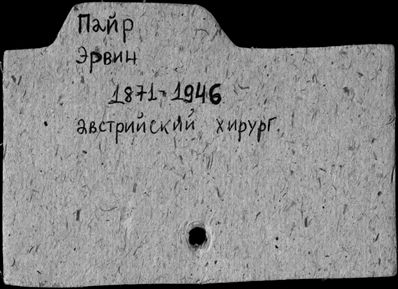 Пайр
Эрвин
1871-1946
австрийский хирург.